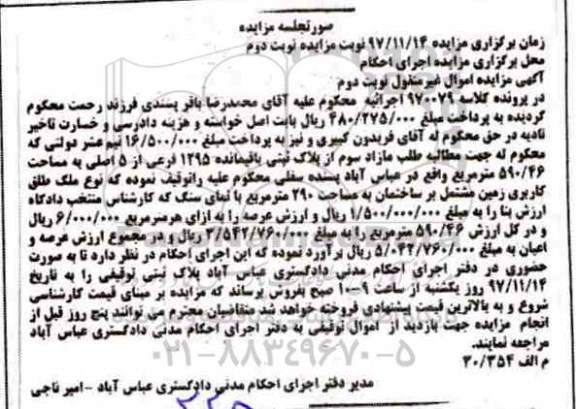 صورتجلسه مزایده
زمان برگزاری مزایده ۹۷/۱۱/۱۴ نوبت مزایده نوبت دوم
محل برگزاری مزایده اجرای احکام
آگهی مزایده اموال غیرمنقول نوبت دوم
در پرونده کلاسه ۹۷۰۰۷۱ اجرائیه محکوم علیه آقای محمدرضا باقر پسندی فرزند رحمت محکوم
گردیده به پرداخت مبلغ ۴۸۰/۲۷۵/۰۰۰ ریال بابت اصل خواسته و هزینه دادرسی و خسارت تاخیر
تادیه در حق محکوم له آقای فریدون کبیری و نیز به پرداخت مبلغ ۱۶/۵۰۰/۰۰۰ نیم عشر دولتی که
محکوم له جهت مطالبه طلب مازاد سوم از پلاک ثبتی باقیمانده ۱۲۹۵ فرعی از ۵ اصلی به مساحت
۵۹۰/۴۶ مترمربع واقع در عباس آباد پسنده سفلی محکوم علیه راتوقیف نموده که نوع ملک طلق
کاربری زمین مشتمل بر ساختمان به مساحت ۲۹۰ مترمربع با نمای سنگ که کارشناس منتخب دادگاه
ارزش بنا را به مبلغ ۱/۵۰۰/۰۰۰/۰۰۰ ریال و ارزش عرصه را به ازای هرمترمربع ۶/۰۰۰/۰۰۰ ریال
و در کل ارزش ۵۹۰/۴۶ مترمربع را به مبلغ ۳/۵۴۲/۷۶۰/۰۰۰ ریال و در مجموع ارزش عرصه و
اعیان به مبلغ ۵/۰۴۲/۷۶۰/۰۰۰ ریال برآورد نموده که این اجرای احکام در نظر دارد تا به صورت
حضوری در دفتر اجرای احکام مدنی دادگستری عباس آباد پلاک ثبتی توقیفی را به تاریخ
۹۷/۱۱/۱۴ روز یکشنبه از ساعت ۹-۱۰ صبح بفروش برساند که مزایده بر مبنای قیمت کارشناسی
شروع و به بالاترین قیمت پیشنهادی فروخته خواهد شد متقاضیان محترم می توانند پنج روز قبل از
انجام مزایده جهت بازدید از اموال توقیفی به دفتر اجرای احکام مدنی دادگستری عباس آباد
مراجعه نمایند.
م الف ۳۰/۳۵۴
مدیر دفتر اجرای احکام مدنی دادگستری عباس آباد - امیر تاجی
۰۲۱-۸۸۳۴۹۶۷۰-۵